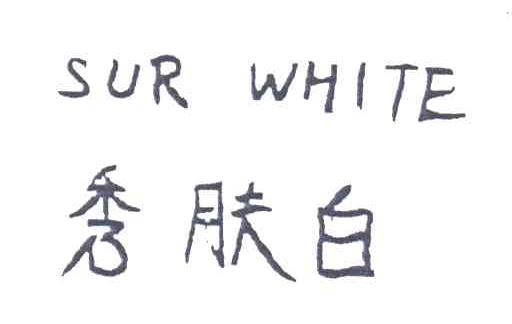 SUR WHITE
秀肤白